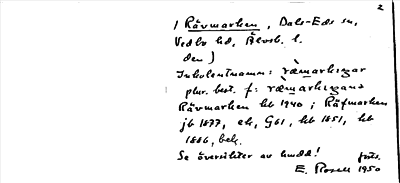 2
/ Rävmarken, Dals-Eds sn,
Vedbo hd, Älvsb. l.
den)
Inbolentnamn: ræmarkegar
plur. best. f: ræmarkegana
Rävmarken kb 1940; Räfmarken
jb 1877, ek, G61, kb 1851, kb
1886, bek.
Se översikter av hudd!
E. Rosell 1950